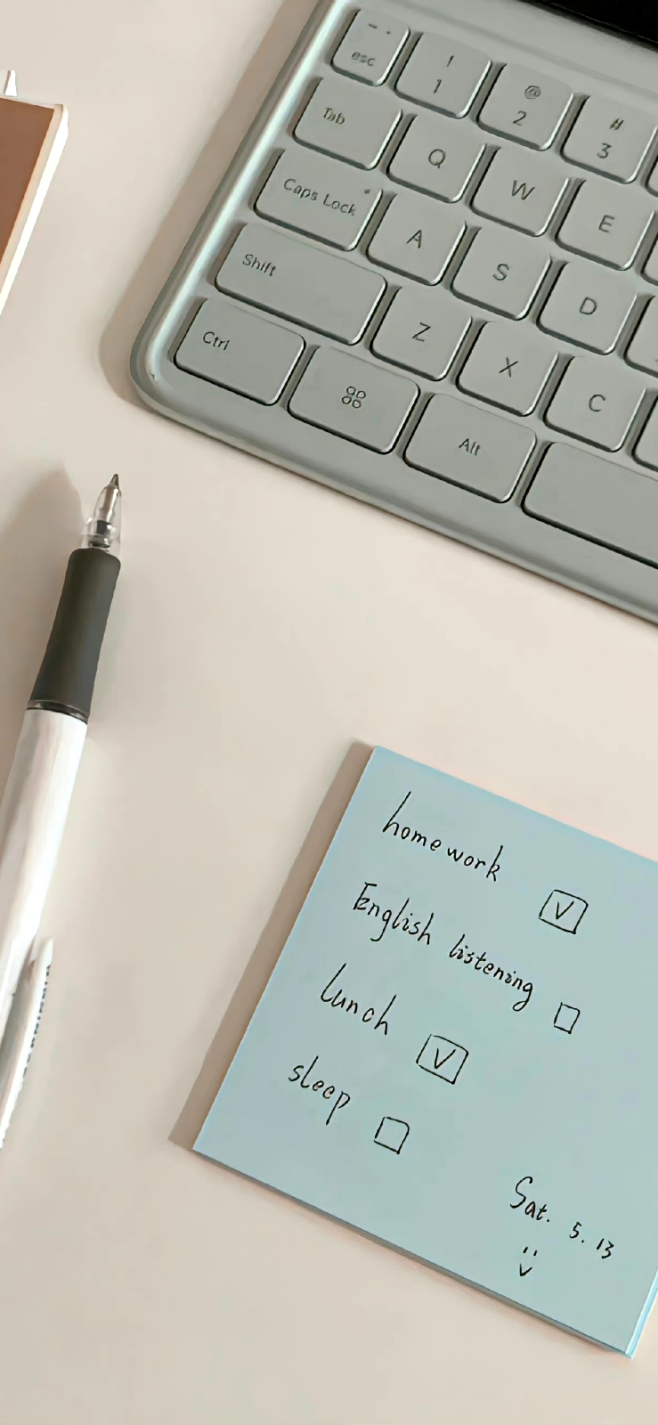 esc
! 1
@ 2
# 3
Tab
Q
W
E
Caps Lock
A
S
D
Shift
Z
X
C
Ctrl
Alt
homework
English listening
lunch
sleep
Sat. 5. 13